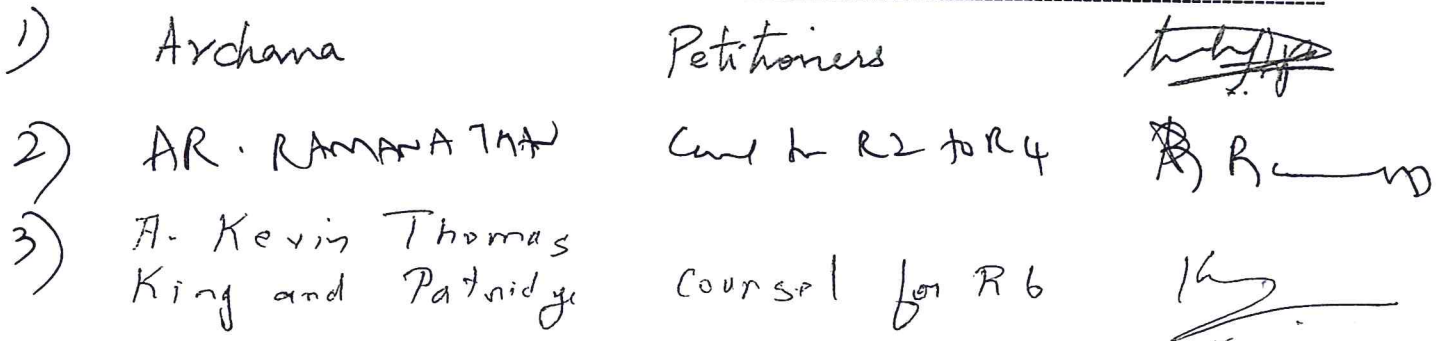 1) Archana Petitioners
2) AR. RAMANATHAN R2 to R4
3) A. Kevin Thomas
King and Patridge Counsel for R6